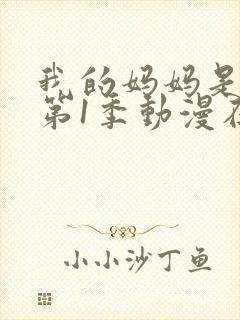 我的妈妈是
第1季動漫在
小小沙丁鱼